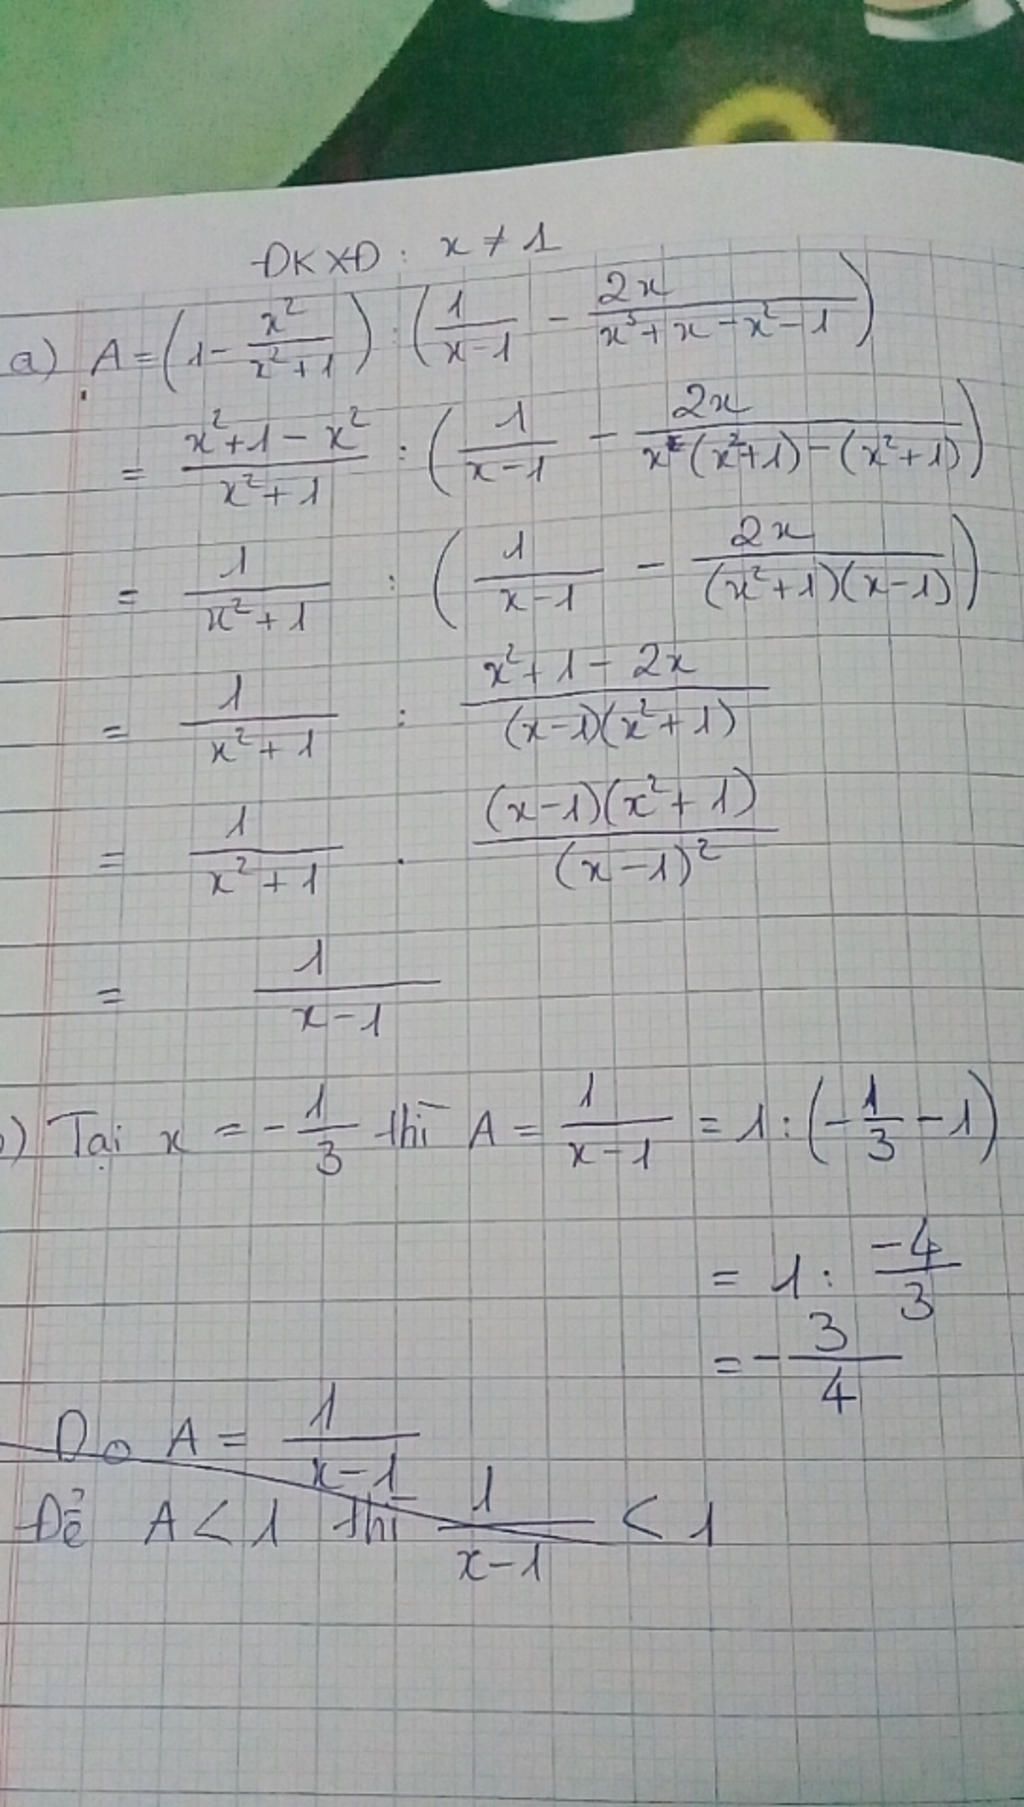 ĐKXĐ: x ≠ 1
a) A = (1 - x²/(x²+1)) : (1/(x-1) - 2x/(x³+x-x²-1))
= (x²+1-x²)/(x²+1) : (1/(x-1) - 2x/(x(x²+1)-(x²+1)))
= 1/(x²+1) : (1/(x-1) - 2x/((x²+1)(x-1)))
= 1/(x²+1) : (x²+1-2x)/((x-1)(x²+1))
= 1/(x²+1) . ((x-1)(x²+1))/(x-1)²
= 1/(x-1)
b) Tại x = -1/3 thì A = 1/(x-1) = 1:(-1/3 - 1)
= 1: -4/3
= -3/4
Do A = 1/(x-1)
Để A < 1 thì 1/(x-1) < 1